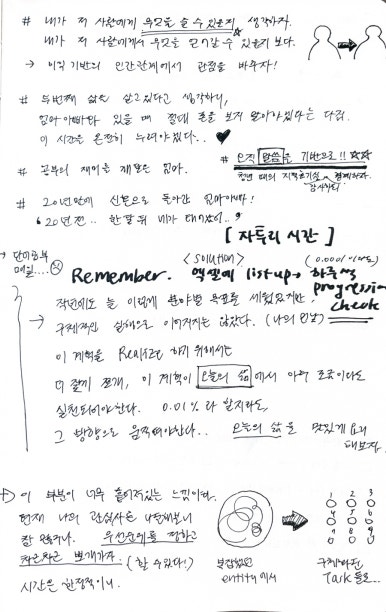 # 내가 저 사람에게 무엇을 줄 수 있을지 생각하자.
내가 저 사람에게서 무엇을 얻어갈 수 있을지 보다.
→ 이익 기반의 인간관계에서 관점을 바꾸자!
# 두번째 삶을 살고있다고 생각하니,
엄마아빠와 있을 때 절대 폰을 보지 말아야겠다는 다짐.
이 시간을 온전히 누려야겠다..
# 공부의 재미를 깨달은 엄마.
# 오직 말씀을 기반으로!!
# 20년만에 신혼으로 돌아간 엄마아빠!
"20년전.. 한 달 뒤 네가 태어났어.."
[ 자투리 시간 ]
<Solution> (0.0001이라도)
Remember. 엑셀에 list up → 하루씩 progression check
작년에도 늘 이렇게 분야별 목표를 세웠었지만,
→ 구체적인 실행으로 이어지지는 않았다. (나의 민낯)
이 계획을 Realize 하기 위해서는
더 잘게 쪼개, 이 계획이 오늘의 삶에서 아주 조금이라도
실천되어야한다. 0.01%라 할지라도,
그 방향으로 움직여야한다.. 오늘의 삶을 맛있게 요리
해보자.
+) 이 부분이 너무 흩어져있는 느낌이다.
현재 나의 관심사를 나열해보니
참 많구나. 우선순위를 정하고
차근차근 뽀개가자. (할 수 있다!)
시간은 한정적이니.
복잡했던
entity에서
1 2 3
4 5 6
7 8 9
구체화된
Task들로..